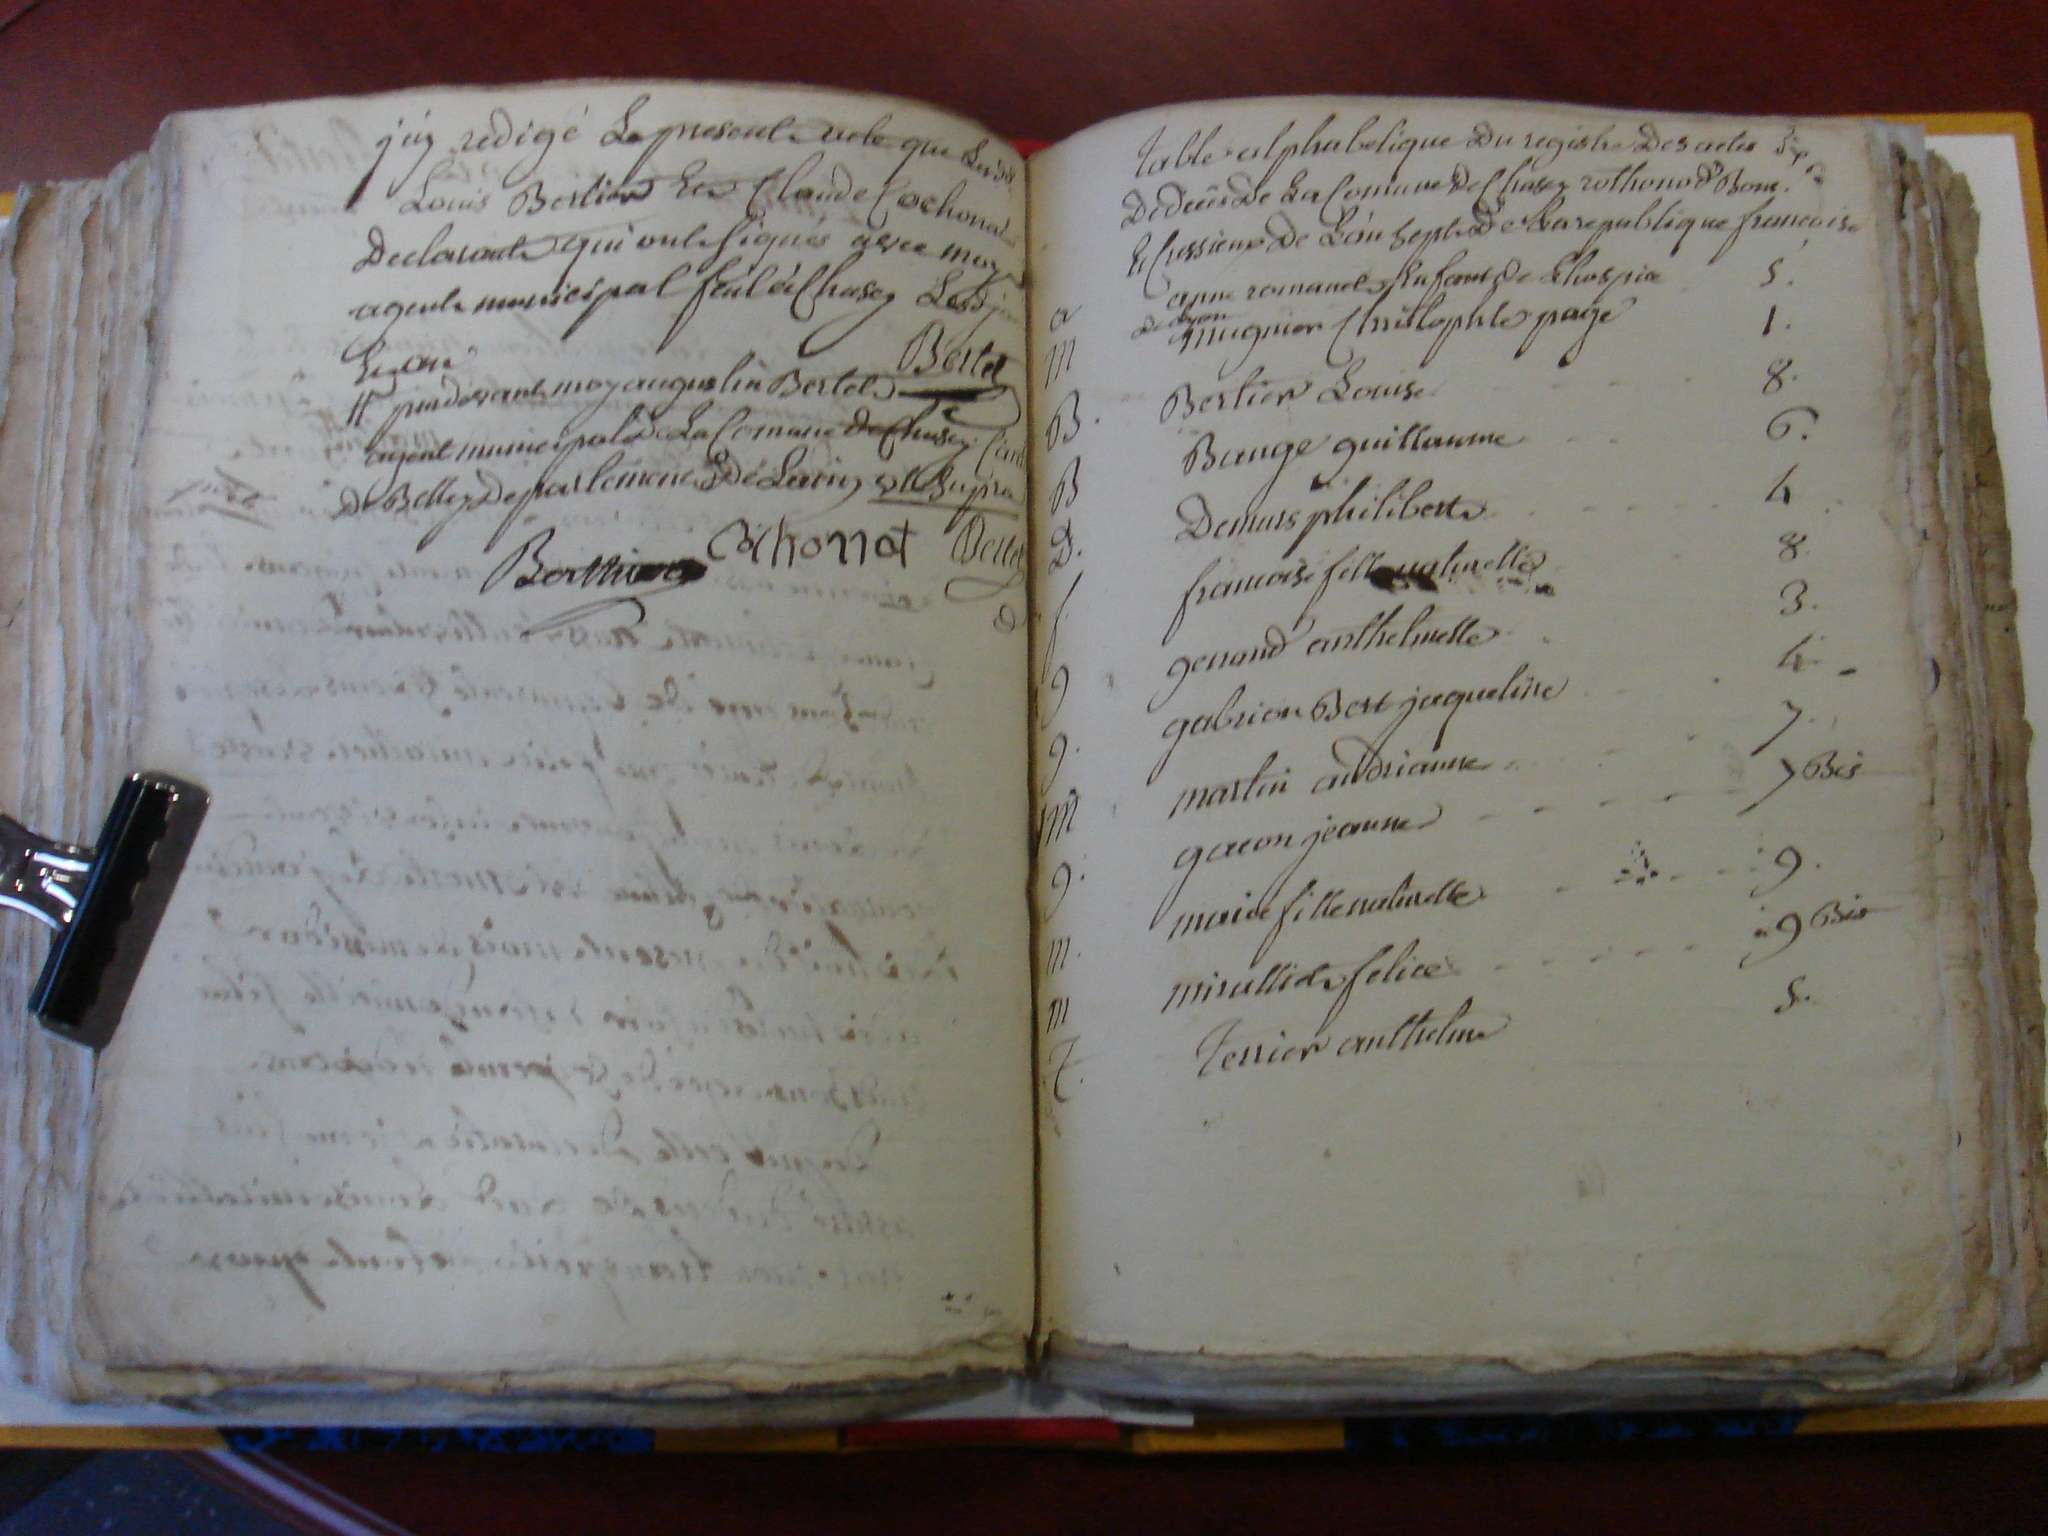 j'ay redigé Le present acte que Lesd.
Louis Bertier Et Claude Cochonat
Declarants qui ont signés avec moy
agent municipal fait à Chasey Lesd jour
Et an
Bertet
pardevant moy augustin Bertet
agent municipal de La Comune de Chasey Cant
De Belley Departement De Lain ut Supra
Berthier Cochonat Bertet
Table alphabetique Du registre Des actes
De decés De La Comune De Chasey rothonod Bons
Et Cressieux De L'an sept De La republique francoise
a anne romanet Enfant de Lhospice 5.
de dijon
m mugnier Christophle page 1.
B. Bertier Louise 8.
B Bauge guillaume 6.
D. Demurs philibert 4
f francoise fille naturelle 8
g genand anthelmette 3.
g. gabrion Bert jaqueline 4.
m martin andrianne 7.
g. gacon jeanne 7 Bis
m. marie fille naturelle 9.
m miralliet felice 9 Bis
T. Terrier anthelme 5.